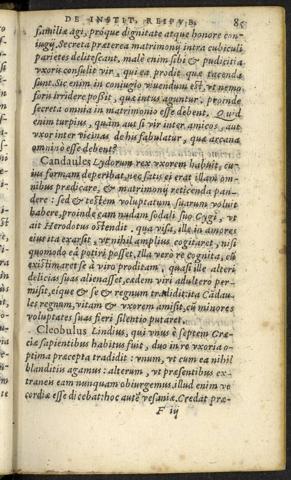 DE INSTIT. REIPVB. 85
familiæ agi, próque dignitate atque honore con
iugij. Secreta præterea matrimonij intra cubiculi
parietes delitescant, malè enim sibi & pudicitiæ
vxoris consulit vir, qui ea prodit quæ tacenda
sunt. Sic enim in coniugio viuendum est, vt nemo
foris irridere possit, quæ intus aguntur. proinde
secreta omnia in matrimonio esse debent. Quid
enim turpius, quàm aut si vir inter amicos, aut
vxor inter vicinas de his fabulatur, quæ arcana
omnino esse debent?
Candaules Lydorum rex vxorem habuit, cu
ius formam deperibat, nec satis ei erat illam om-
nibus prædicare, & matrimonij reticenda pan-
dere : sed & testem voluptatum suarum voluit
habere, proinde eam nudam sodali suo Cygi, vt
ait Herodotus ostendit, qua visa, ille in amores
eius ita exarsit, vt nihil amplius cogitaret, nisi
quomodo ea potiri posset. Illa vero re cognita, cù
existimaret se à viro proditam, quasi ille alteri
delicias suas alienasset, eadem viri adultero per-
misit, eique & se & regnum tradidit: ita Cãdau-
les regnum, vitam & vxorem amisit, cũ minores
voluptates suas fieri silentio putaret.
Cleobulus Lindius, qui vnus è septem Græ-
ciæ sapientibus habitus fuit, duo in re vxoria o-
ptima præcepta tradidit : vnum, vt cum ea nihil
blanditiis agamus : alterum, vt præsentibus ex-
traneis eam nunquam obiurgemus. illud enim ve
cordiæ esse dicebat: hoc autẽ vesaniæ. Credat præ-
F iij